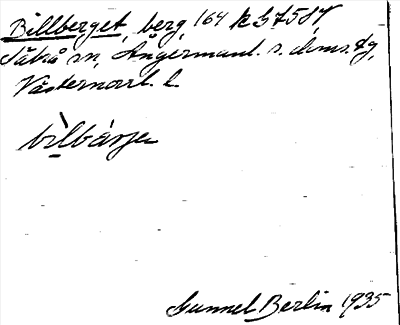 Billberget, berg, 164 k 37587
Sätrå sn, Ångermanl. s. dms. dg,
Västernorrl. l.
bìlbárje
Gunnel Berlin 1935